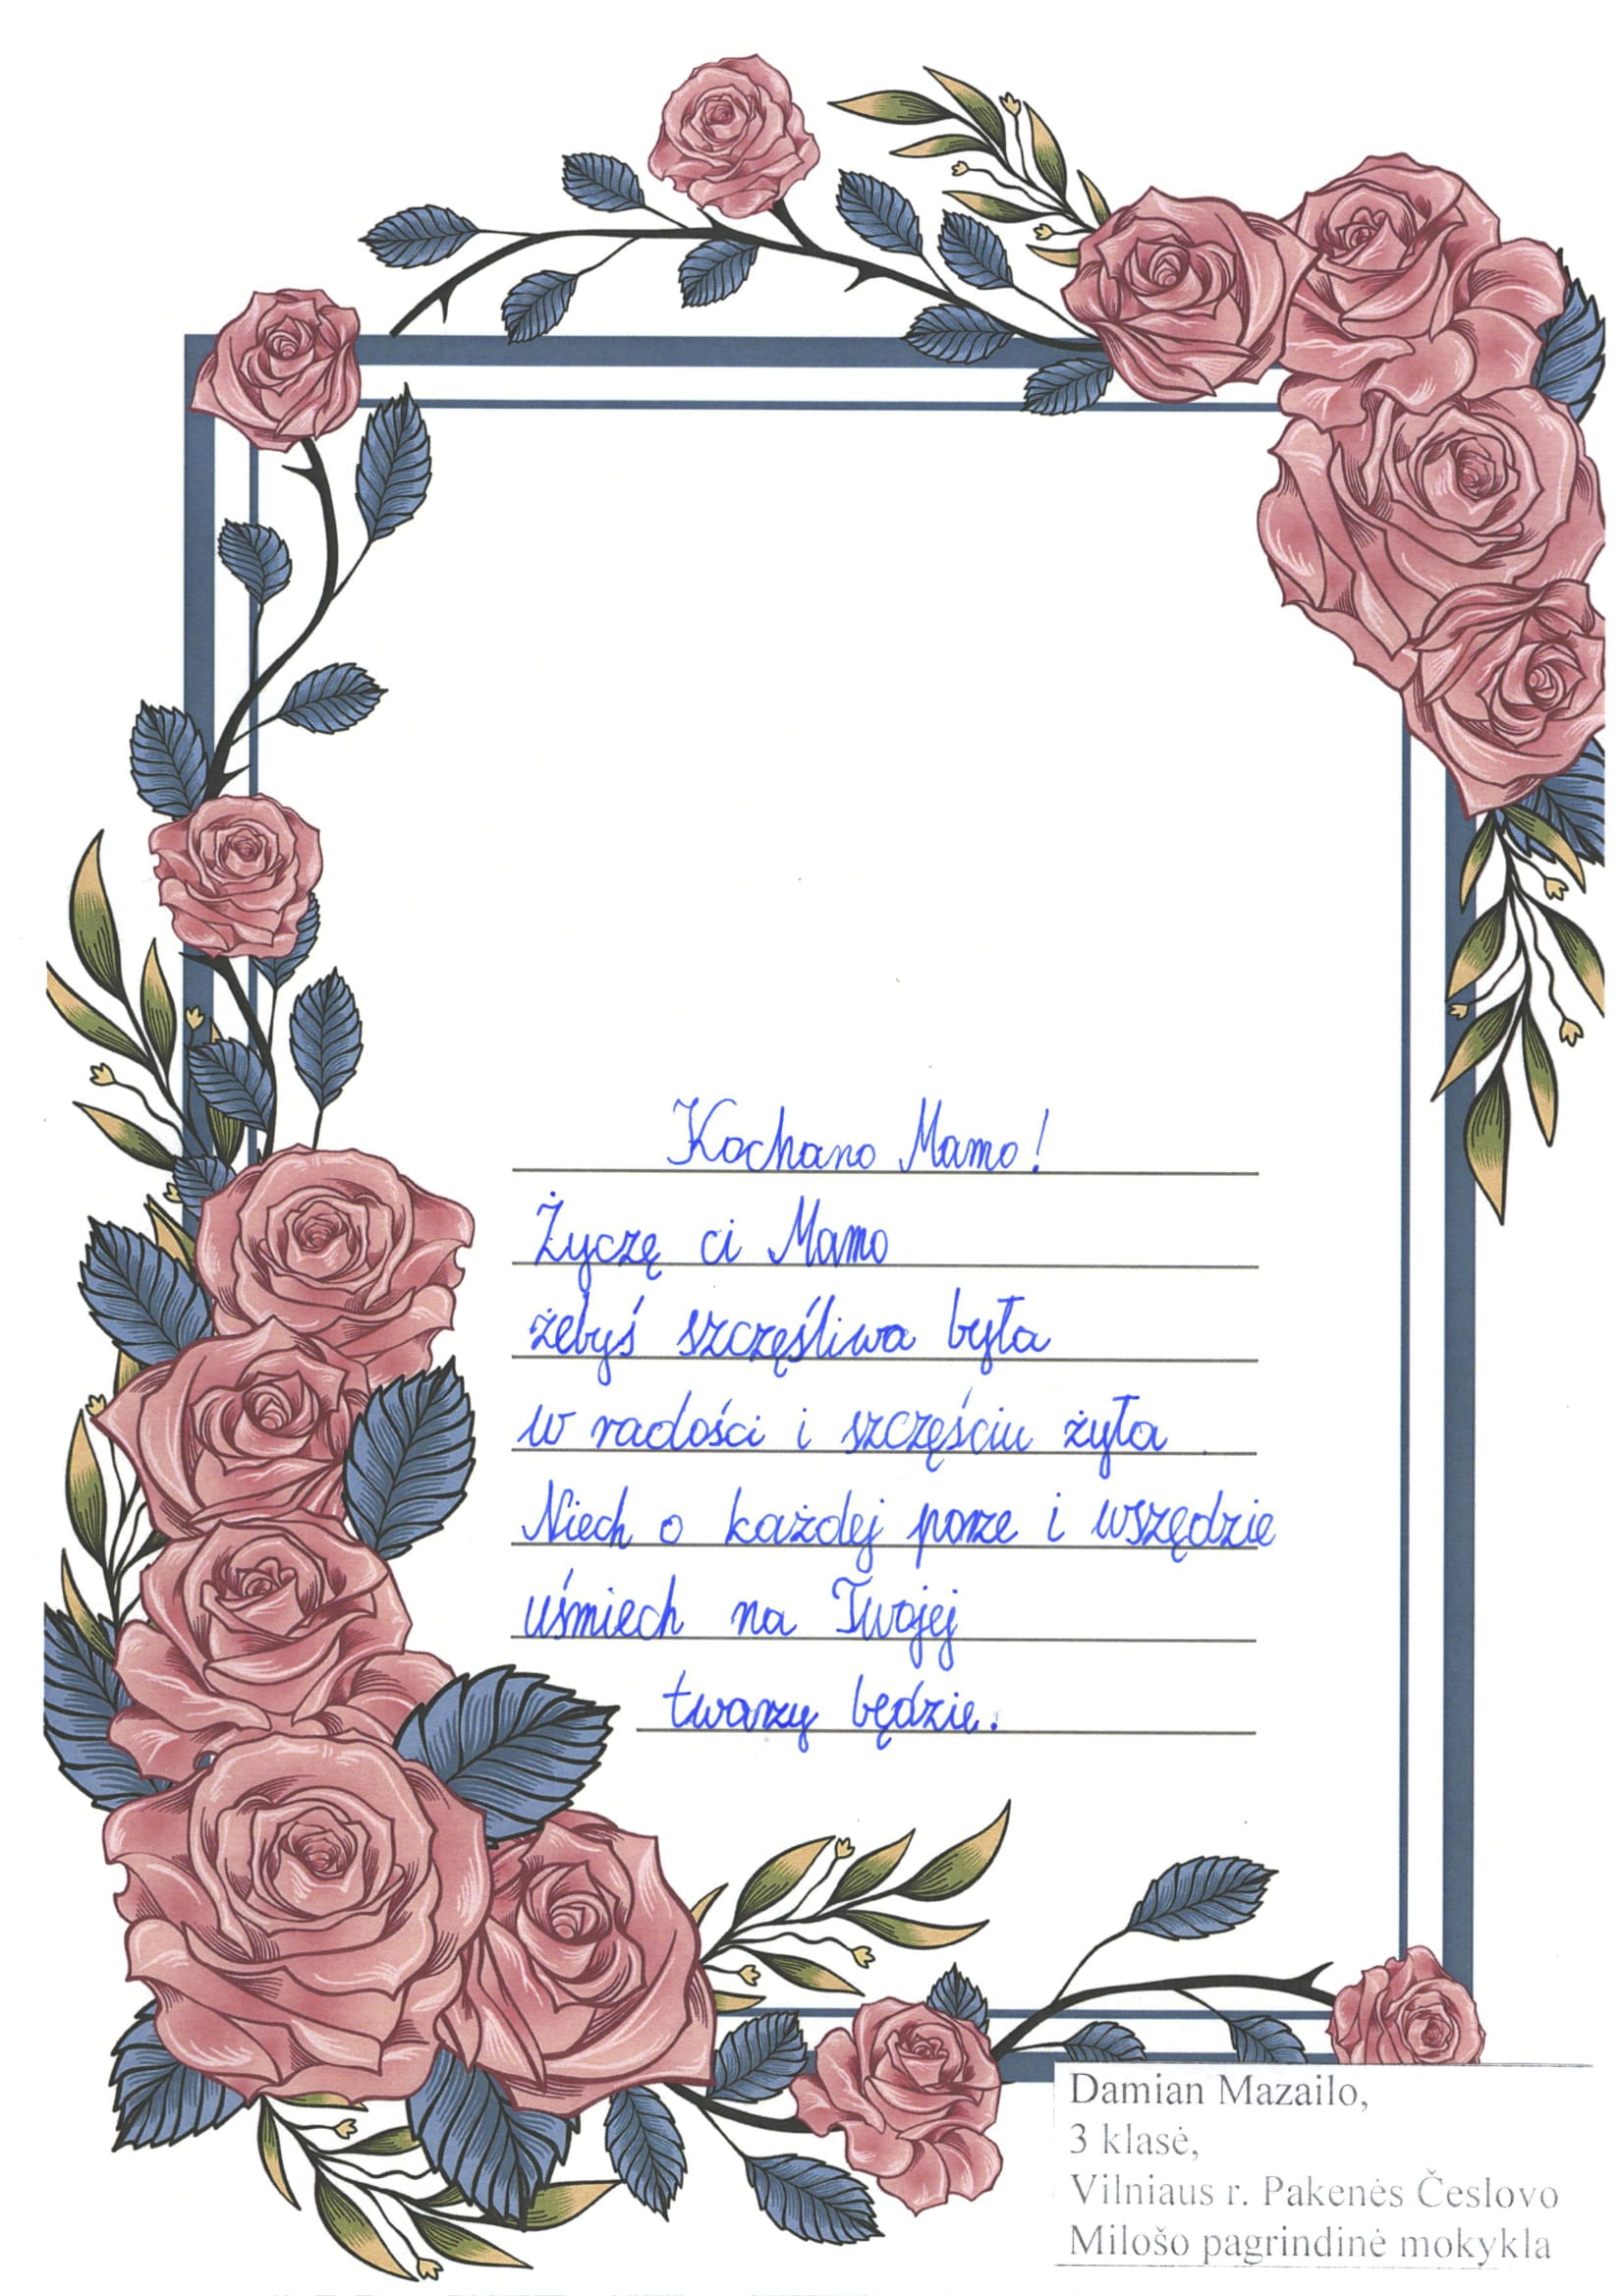 Kochano Mamo!
Życzę ci Mamo
żebyś szczęśliwa była
w radości i szczęściu żyła
Niech o każdej porze i wszędzie
uśmiech na Twojej
twarzy będzie.
Damian Mazailo,
3 klasė,
Vilniaus r. Pakenės Česlovo
Milošo pagrindinė mokykla